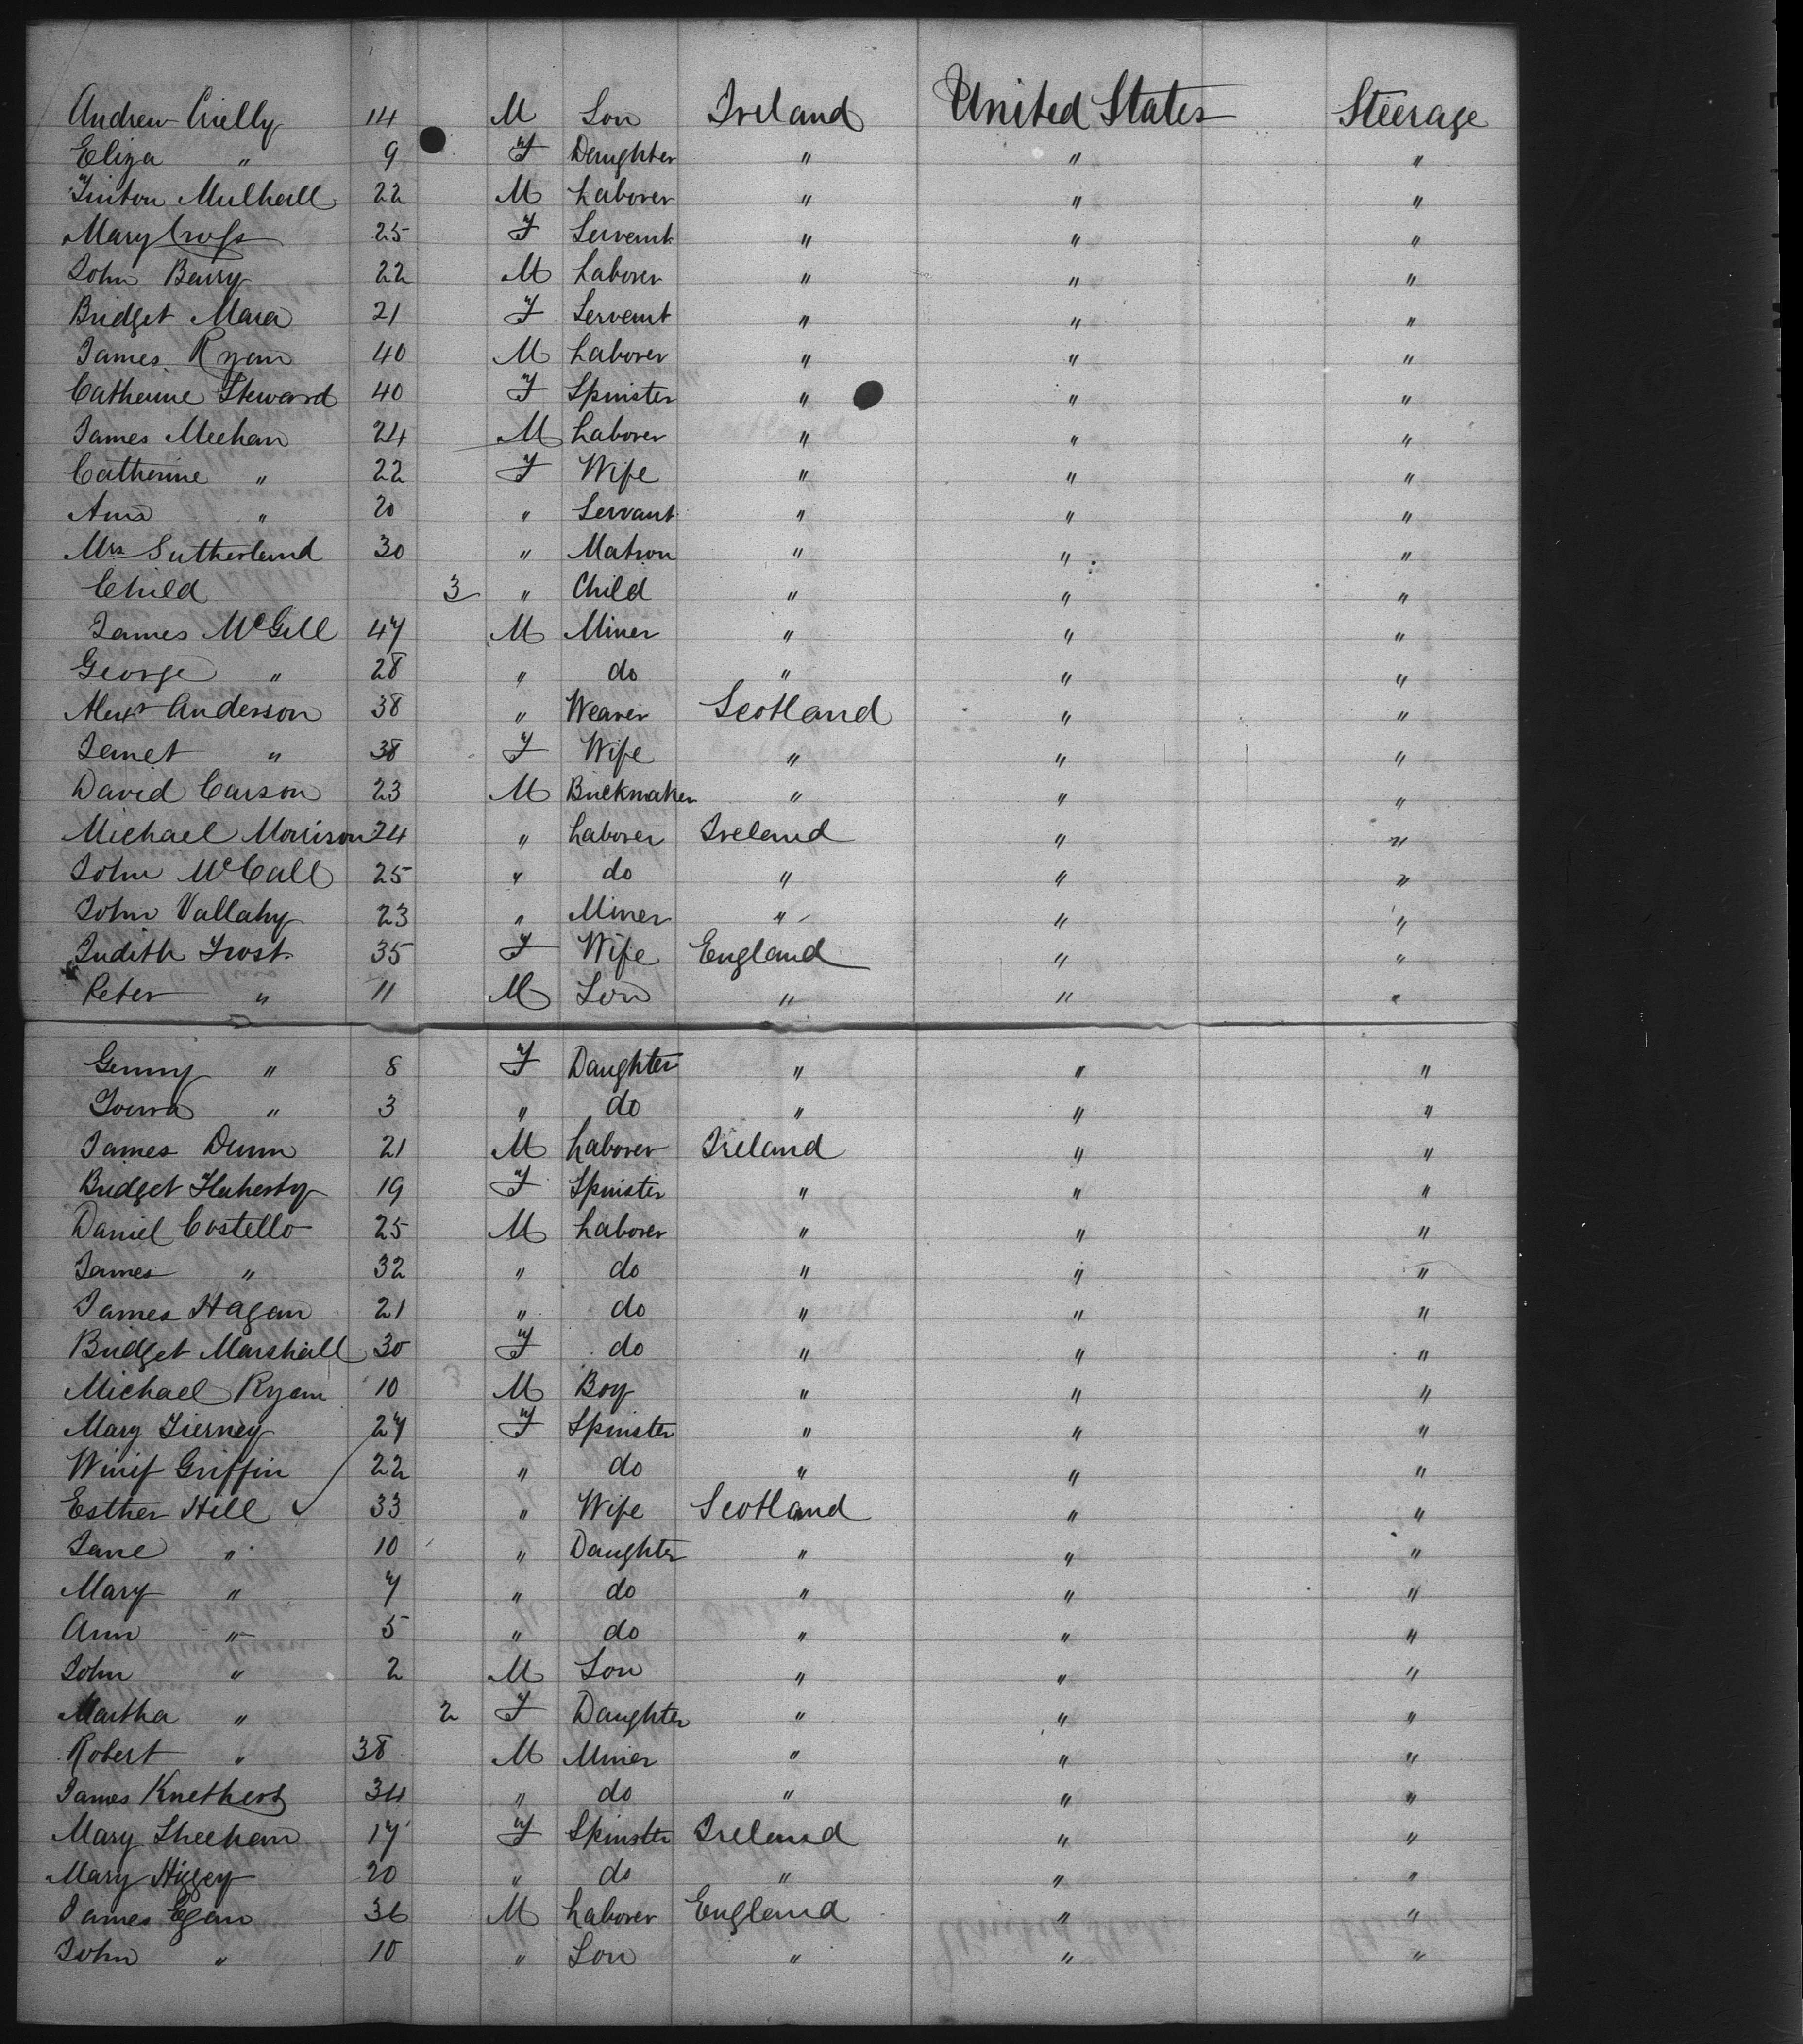 Andrew Crielly 14 M Son Ireland United States Steerage
Eliza " 9 F Daughter " " "
Finton Mulhall 22 M Laborer " " "
Mary Cross 25 F Servant " " "
John Barry 22 M Laborer " " "
Bridget Mara 21 F Servant " " "
James Ryan 40 M Laborer " " "
Catherine Steward 40 F Spinster " " "
James Meehan 24 M Laborer " " "
Catherine " 22 F Wife " " "
Ann " 20 " Servant " " "
Mrs Sutherland 30 " Matron " " "
Child 3 " Child " " "
James McGill 47 M Miner " " "
George " 28 " do " " "
Alexr Anderson 38 " Weaver Scotland " "
Janet " 38 F Wife " " "
David Carson 23 M Brickmaker " " "
Michael Morrison 24 " Laborer Ireland " "
John McCall 25 " do " " "
John Vallahy 23 " Miner " " "
Judith Frost 35 F Wife England " "
Peter " 11 M Son " " "
Genny " 8 F Daughter " " "
" 3 " do " " "
James Dunn 21 M Laborer Ireland " "
Bridget Flaherty 19 F Spinster " " "
Daniel Costello 25 M Laborer " " "
James " 32 " do " " "
James Hagan 21 " do " " "
Bridget Marshall 30 F do " " "
Michael Ryan 10 M Boy " " "
Mary Tierney 27 F Spinster " " "
Winif Griffin 22 " do " " "
Esther Hill 33 " Wife Scotland " "
Jane " 10 " Daughter " " "
Mary " 7 " do " " "
Ann " 5 " do " " "
John " 2 M Son " " "
Martha " 2 F Daughter " " "
Robert " 38 M Miner " " "
James 34 " do " " "
Mary Sheehan 17 F Spinster Ireland " "
Mary Higgey 20 " do " " "
James Egan 36 M Laborer England " "
John " 10 " Son " " "